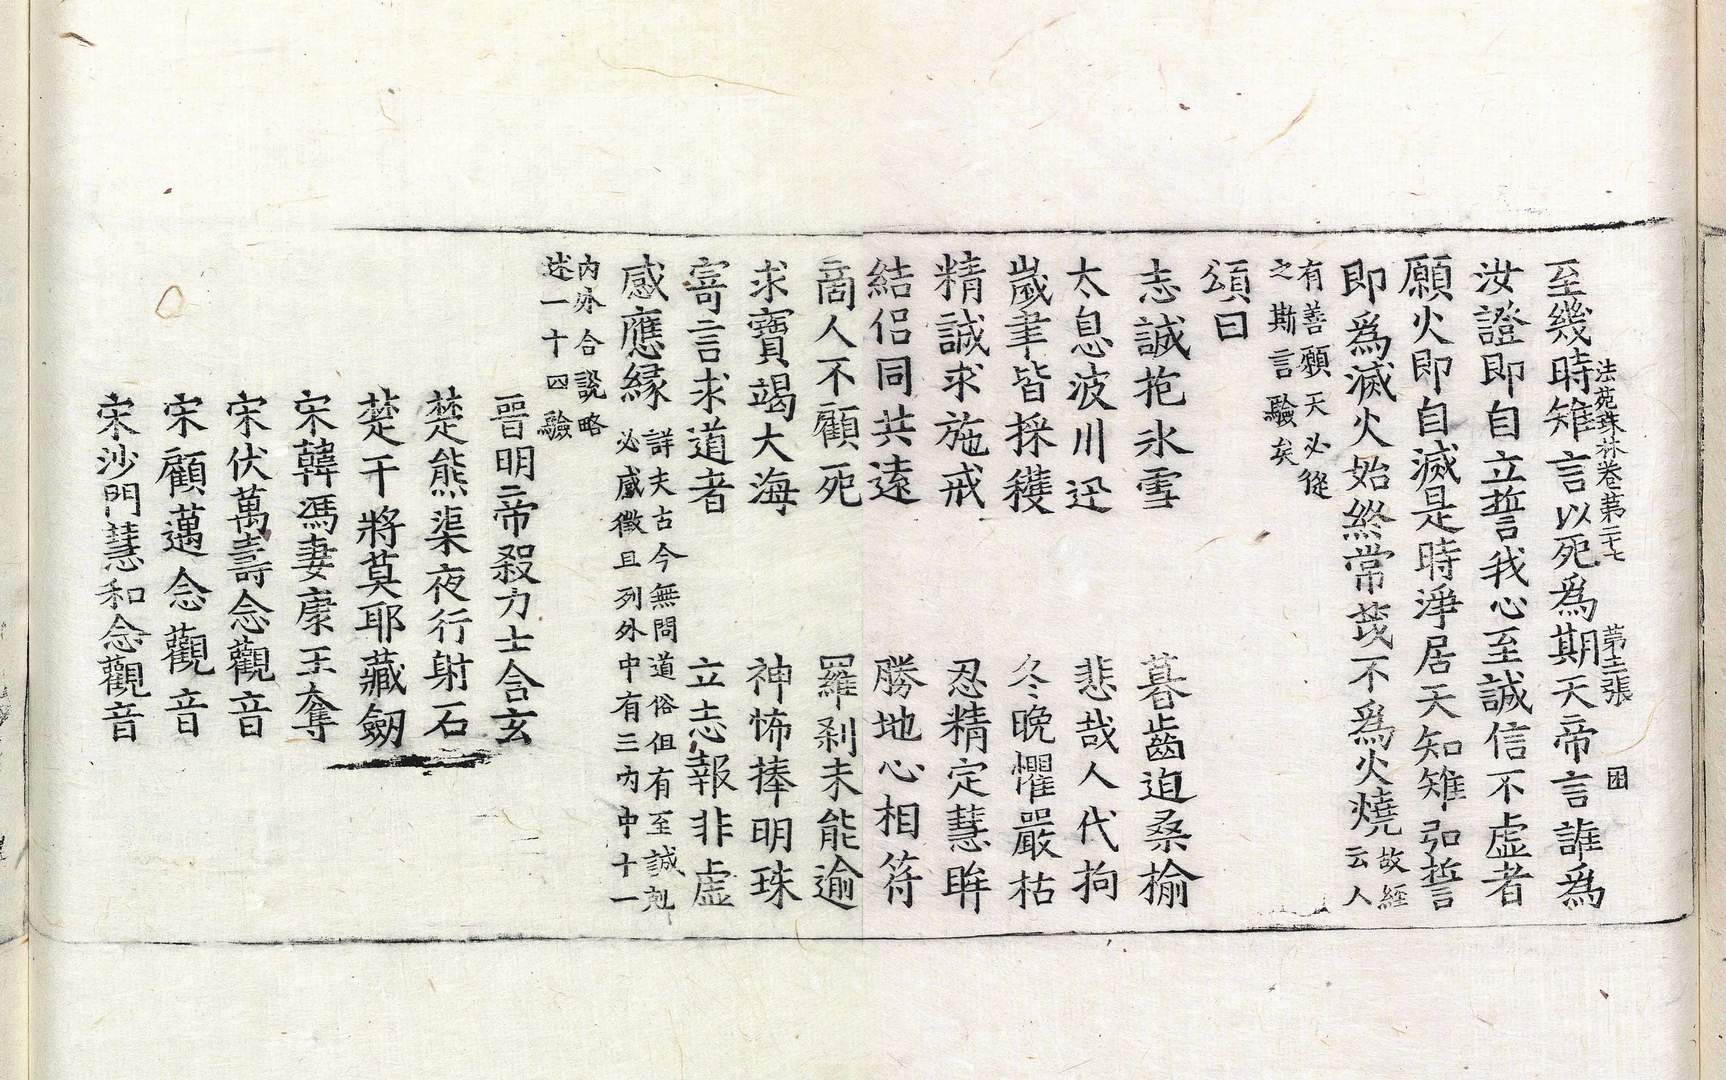 法苑珠林卷第二十七 第十二張 困
至幾時雉言以死爲期天帝言誰爲
汝證即自立誓言我心至誠信不虛者
願火即自滅是時淨居天知雉弘誓
即爲滅火始終常茂不爲火燒故經云人
有善願天必從之斯言驗矣
頌曰
志誠抱氷雪 暮齒迫桑榆
太息波川迅 悲哉人代拘
歲聿皆採穫 冬晚懼嚴枯
精誠求施戒 忍精定慧眸
結侣同共遠 勝地心相符
商人不顧死 羅刹未能逾
求寶竭大海 神怖捧明珠
寄言求道者 立志報非虛
感應緣 詳夫古今無問道俗但有至誠剋必感徵且列外中有三内中十一
内外合說略述一十四驗
晉明帝殺力士含玄
楚熊渠夜行射石
楚干將莫耶藏劒
宋韓馮妻康王奪
宋伏萬壽念觀音
宋顧邁念觀音
宋沙門慧和念觀音